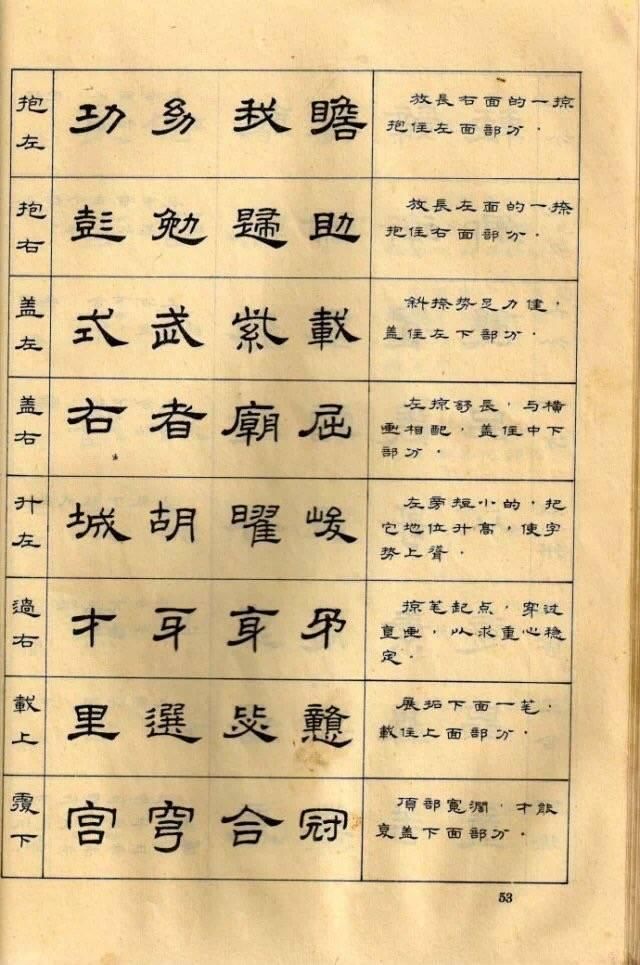 抱左
功 幼 我 瞻
放長右面的一掠
抱住左面部分.
抱右
彭 勉 歸 助
放長左面的一捺
抱住右面部分.
盖左
式 武 紫 載
斜捺势足力健,
盖住左下部分.
盖右
右 者 廟 屈
左掠舒長,与横
画相配,盖住中下
部分.
升左
城 胡 曜 峻
左旁短小的,把
它地位升高,使字
势上聳.
過右
才 牙
掠笔起点,穿过
画,以求重心稳
定.
載上
里 選 毖
展拓下面一笔,
載住上面部分.
覆下
宫 穹 合 冠
頂部寬濶,才能
盖下面部分.
53